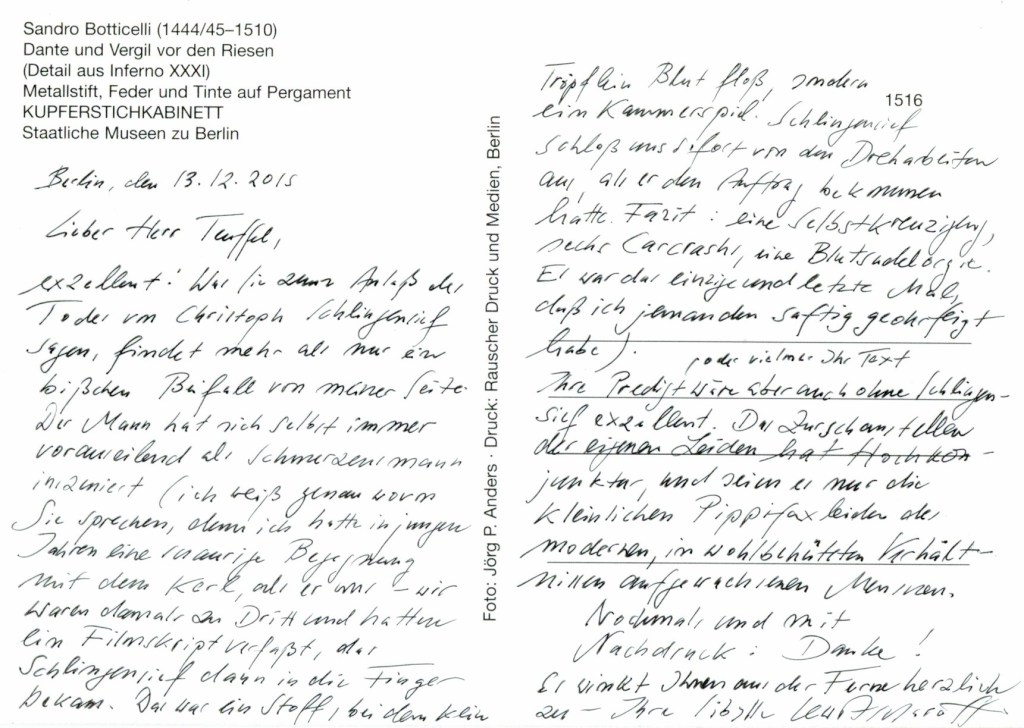 Sandro Botticelli (1444/45–1510)
Dante und Vergil vor den Riesen
(Detail aus Inferno XXXI)
Metallstift, Feder und Tinte auf Pergament
KUPFERSTICHKABINETT
Staatliche Museen zu Berlin
Berlin, den 13.12.2015
Lieber Herr Teuffel,
exzellent! Was Sie zum Anlaß des
Todes von Christoph Schlingensief
sagen, findet mehr als nur ein
bißchen Beifall von meiner Seite.
Der Mann hat sich selbst immer
vorauseilend als Schmerzensmann
inszeniert (ich weiß genau wovon
Sie sprechen, denn ich hatte in jungen
Jahren eine schaurige Begegnung
mit dem Kerl, als er uns – wir
waren damals zu Dritt und hatten
ein Filmskript verfaßt, das
Schlingensief dann in die Finger
bekam. Das war ein Stoff, bei dem kein
Foto: Jörg P. Anders · Druck: Rauscher Druck und Medien, Berlin
1516
Tröpflein Blut floß, sondern
ein Kammerspiel. Schlingensief
schloß uns sofort von den Dreharbeiten
aus, als er den Auftrag bekommen
hatte. Fazit: eine Selbstkreuzigung,
sechs Carcrashs, eine Blutsudelorgie.
Es war das einzige und letzte Mal,
daß ich jemanden saftig geohrfeigt
habe).
oder vielmehr Ihr Text
Ihre Predigt wäre aber auch ohne Schlingen-
sief exzellent. Das Zurschaustellen
der eigenen Leiden hat Hochkon-
junktur, und seien es nur die
kleinlichen Pippifaxleiden des
modernen, in wohlbehüteten Verhält-
nissen aufgewachsenen Menschen.
Nochmals und mit
Nachdruck: Danke!
Es winkt Ihnen aus der Ferne herzlich
zu – Ihre Sibylle Lewitscharoff